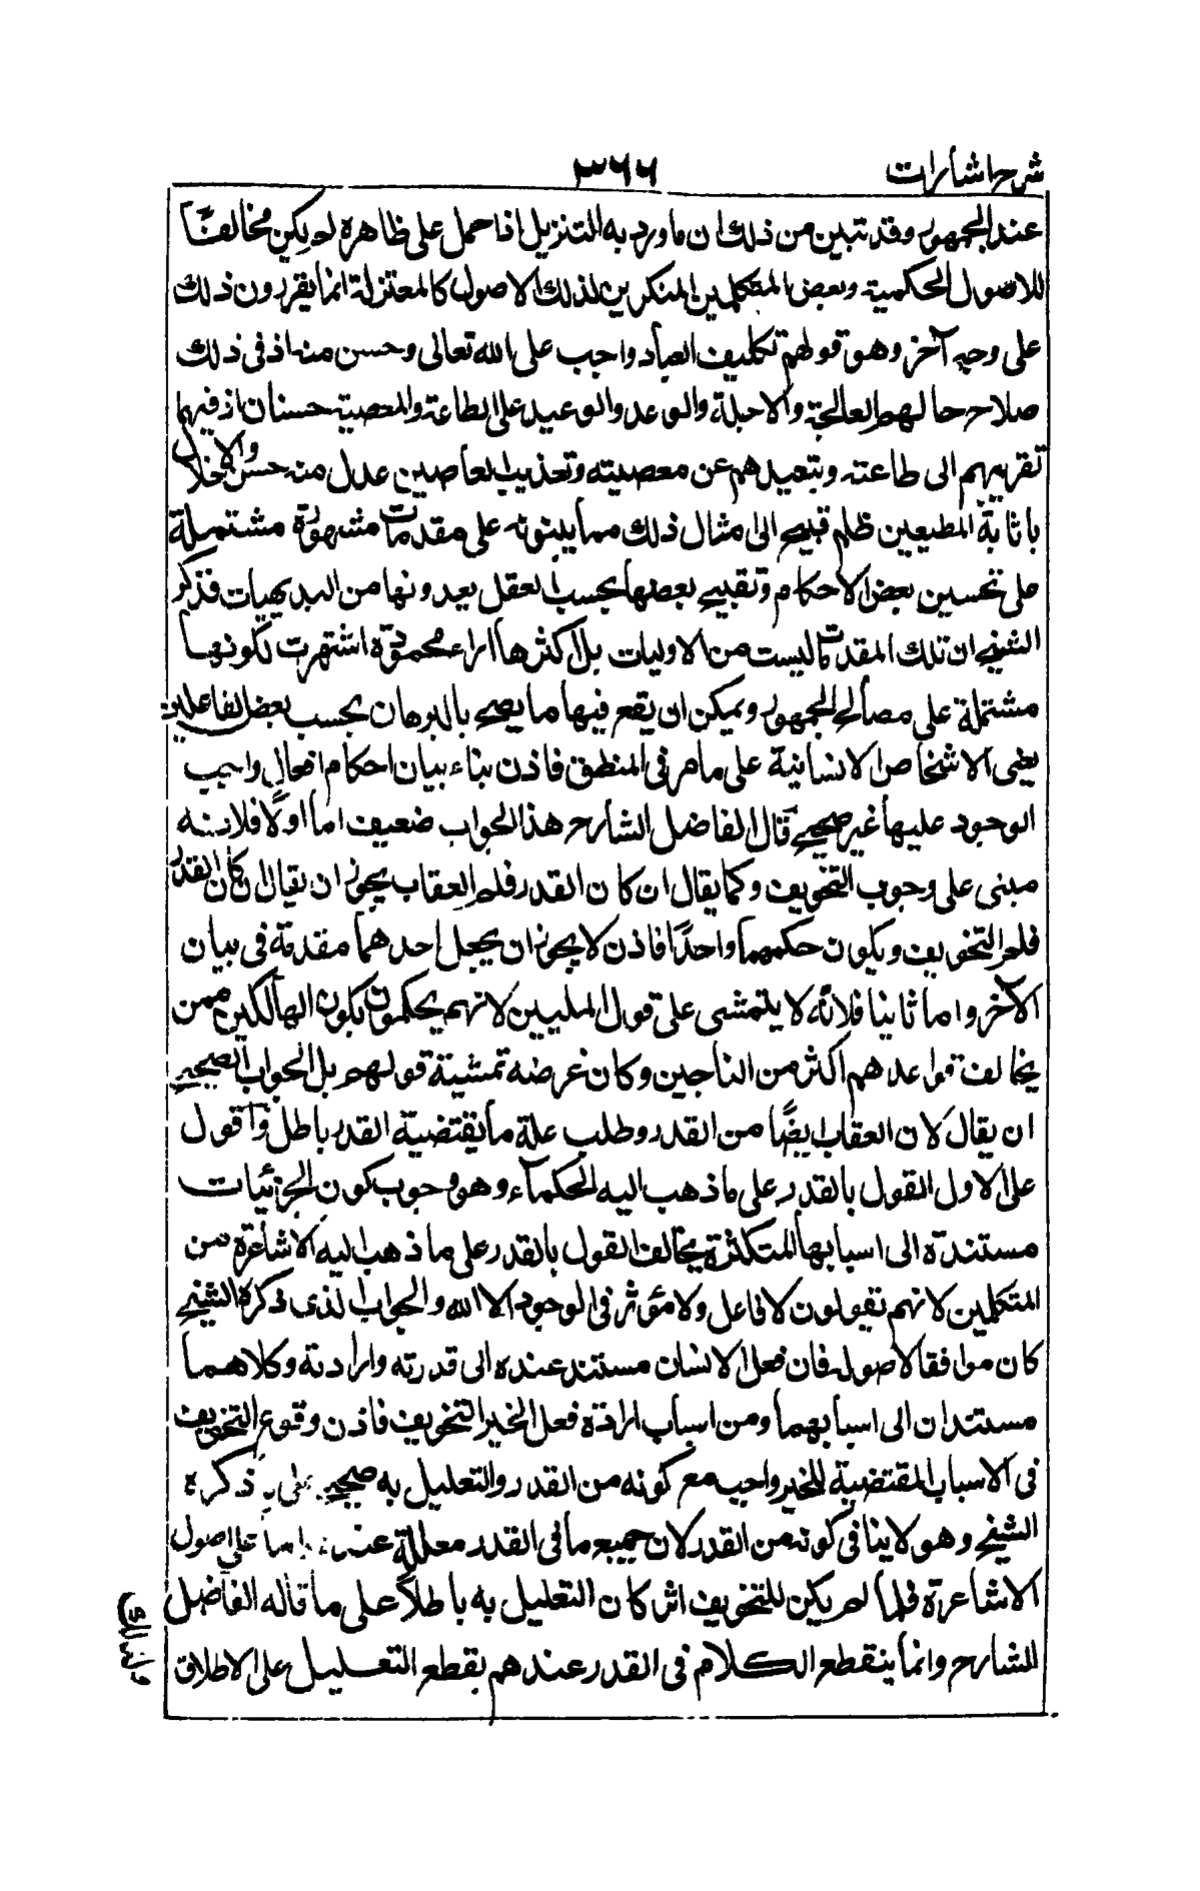 شرح اشارات ٣٦٦
عند الجمهور وقد تبين من ذلك ان ما ورد به التنزيل اذا حمل على ظاهره لم يكن مخالفًا
للاصول الحكمية وبعض المتكلمين المنكرين لذلك الاصول كالمعتزلة انما يقررون ذلك
على وجه آخر وهو قولهم تكليف العباد واجب على الله تعالى وحسن منه اذ فى ذلك
صلاح حالهم العاجلة والآجلة والوعد والوعيد على الطاعة والمعصية حسنان اذ فيهما
تقريبهم الى طاعته وتبعيدهم عن معصيته وتعذيب العاصين عدل منه حسن والاخلال
باثابة المطيعين ظلم قبيح الى امثال ذلك مما يبنونه على مقدمات مشهورة مشتملة
على تحسين بعض الاحكام وتقبيح بعضها بحسب العقل يعدونها من البديهيات فذكر
الشيخ ان تلك المقدمات ليست من الاوليات بل اكثرها اراء محمودة اشتهرت لكونها
مشتملة على مصالح الجمهور ويمكن ان يقع فيها ما يصح بالبرهان بحسب بعض الفاعلين
يعنى الاشخاص الانسانية على ما مر فى المنطق فاذن بناء بيان احكام افعال واجب
الوجود عليها غير صحيح قال الفاضل الشارح هذا الجواب ضعيف اما اولًا فلانه
مبنى على وجوب التخويف وكما يقال ان كان القدر فلم العقاب يجوز ان يقال ان كان القدر
فلم التخويف ويكون حكمهما واحدًا فاذن لا يجوز ان يجعل احدهما مقدمة فى بيان
الآخر واما ثانيا فلانه لا يتمشى على قول المليين لانهم يحكمون بكون الهالكين ممن
يخالف قواعدهم اكثر من الناجين وكان غرضه تمشية قولهم بل الجواب الصحيح
ان يقال لان العقاب ايضًا من القدر وطلب علة ما يقتضية القدر باطل واقول
على الاول القول بالقدر على ما ذهب اليه الحكماء وهو وجوب كون الجزئيات
مستندة الى اسبابها المتكثرة يخالف القول بالقدر على ما ذهب اليه الاشاعرة من
المتكلمين لانهم يقولون لا فاعل ولا مؤثر فى الوجود الا الله والجواب الذى ذكره الشيخ
كان موافقا لاصوله فان فعل الانسان مستند عنده الى قدرته وارادته وكلاهما
مستندان الى اسبابهما ومن اسباب ارادة فعل الخير التخويف فاذن وقوع التخويف
فى الاسباب المقتضية للخير واجب مع كونه من القدر والتعليل به صحيح على ذكره
الشيخ وهو لا ينافى كونه من القدر لان جميع ما فى القدر معللة على اصول
الاشاعرة فلما لم يكن للتخويف اثر كان التعليل به باطلًا على ما قاله الفاضل
الشارح وانما ينقطع الكلام فى القدر عندهم بقطع التعليل على الاطلاق